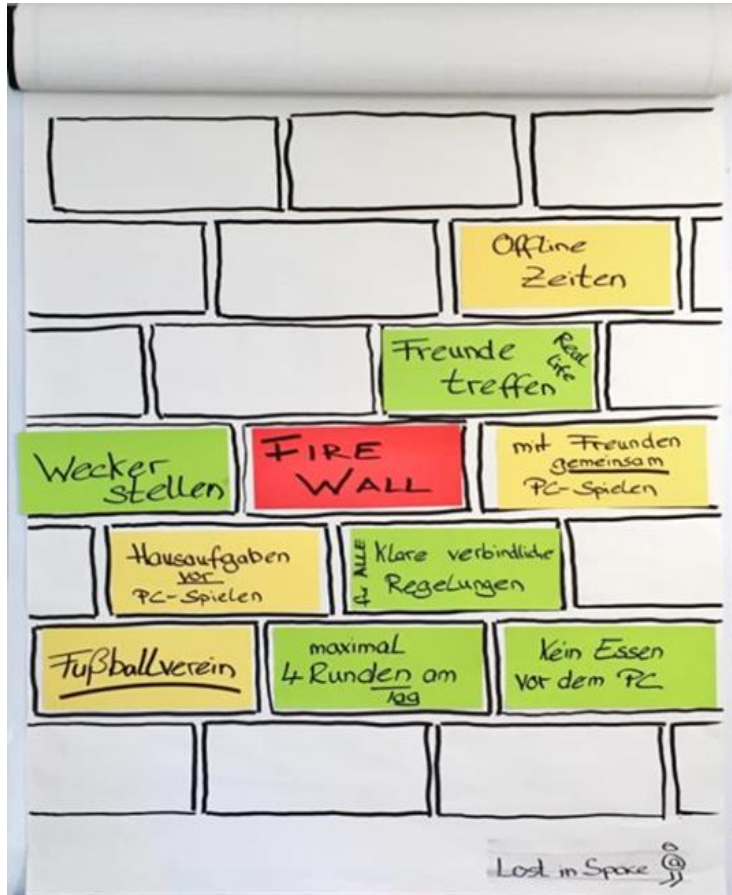 Offline
Zeiten
Freunde Real
treffen Life
Wecker
stellen
FIRE
WALL
mit Freunden
gemeinsam
PC-Spielen
Hausaufgaben
vor
PC-Spielen
für ALLE
Klare verbindliche
Regelungen
Fußballverein
maximal
4 Runden am
Tag
Kein Essen
vor dem PC
Lost in Space @